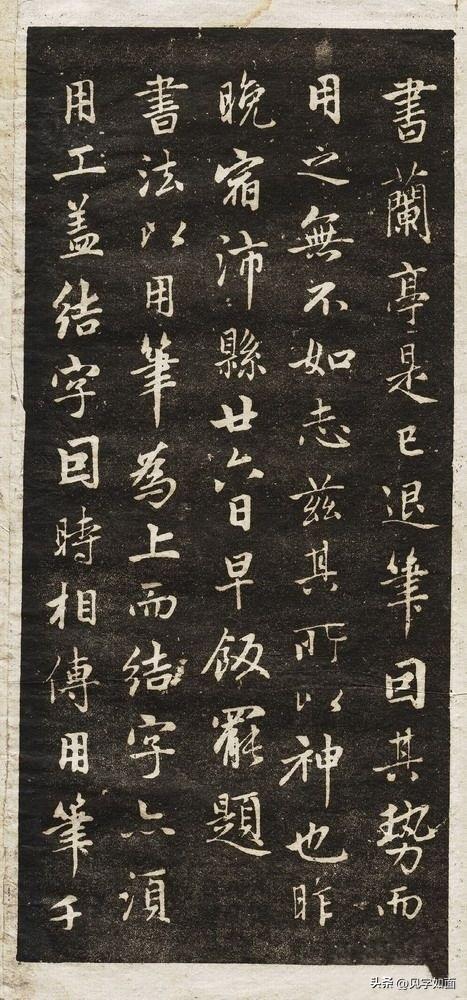 書蘭亭是已退筆因其勢而
用之無不如志兹其所以神也昨
晚宿沛縣廿六日早飯罷題
書法以用筆為上而結字亦須
用工盖結字因時相傳用筆千
头条 @见字如面